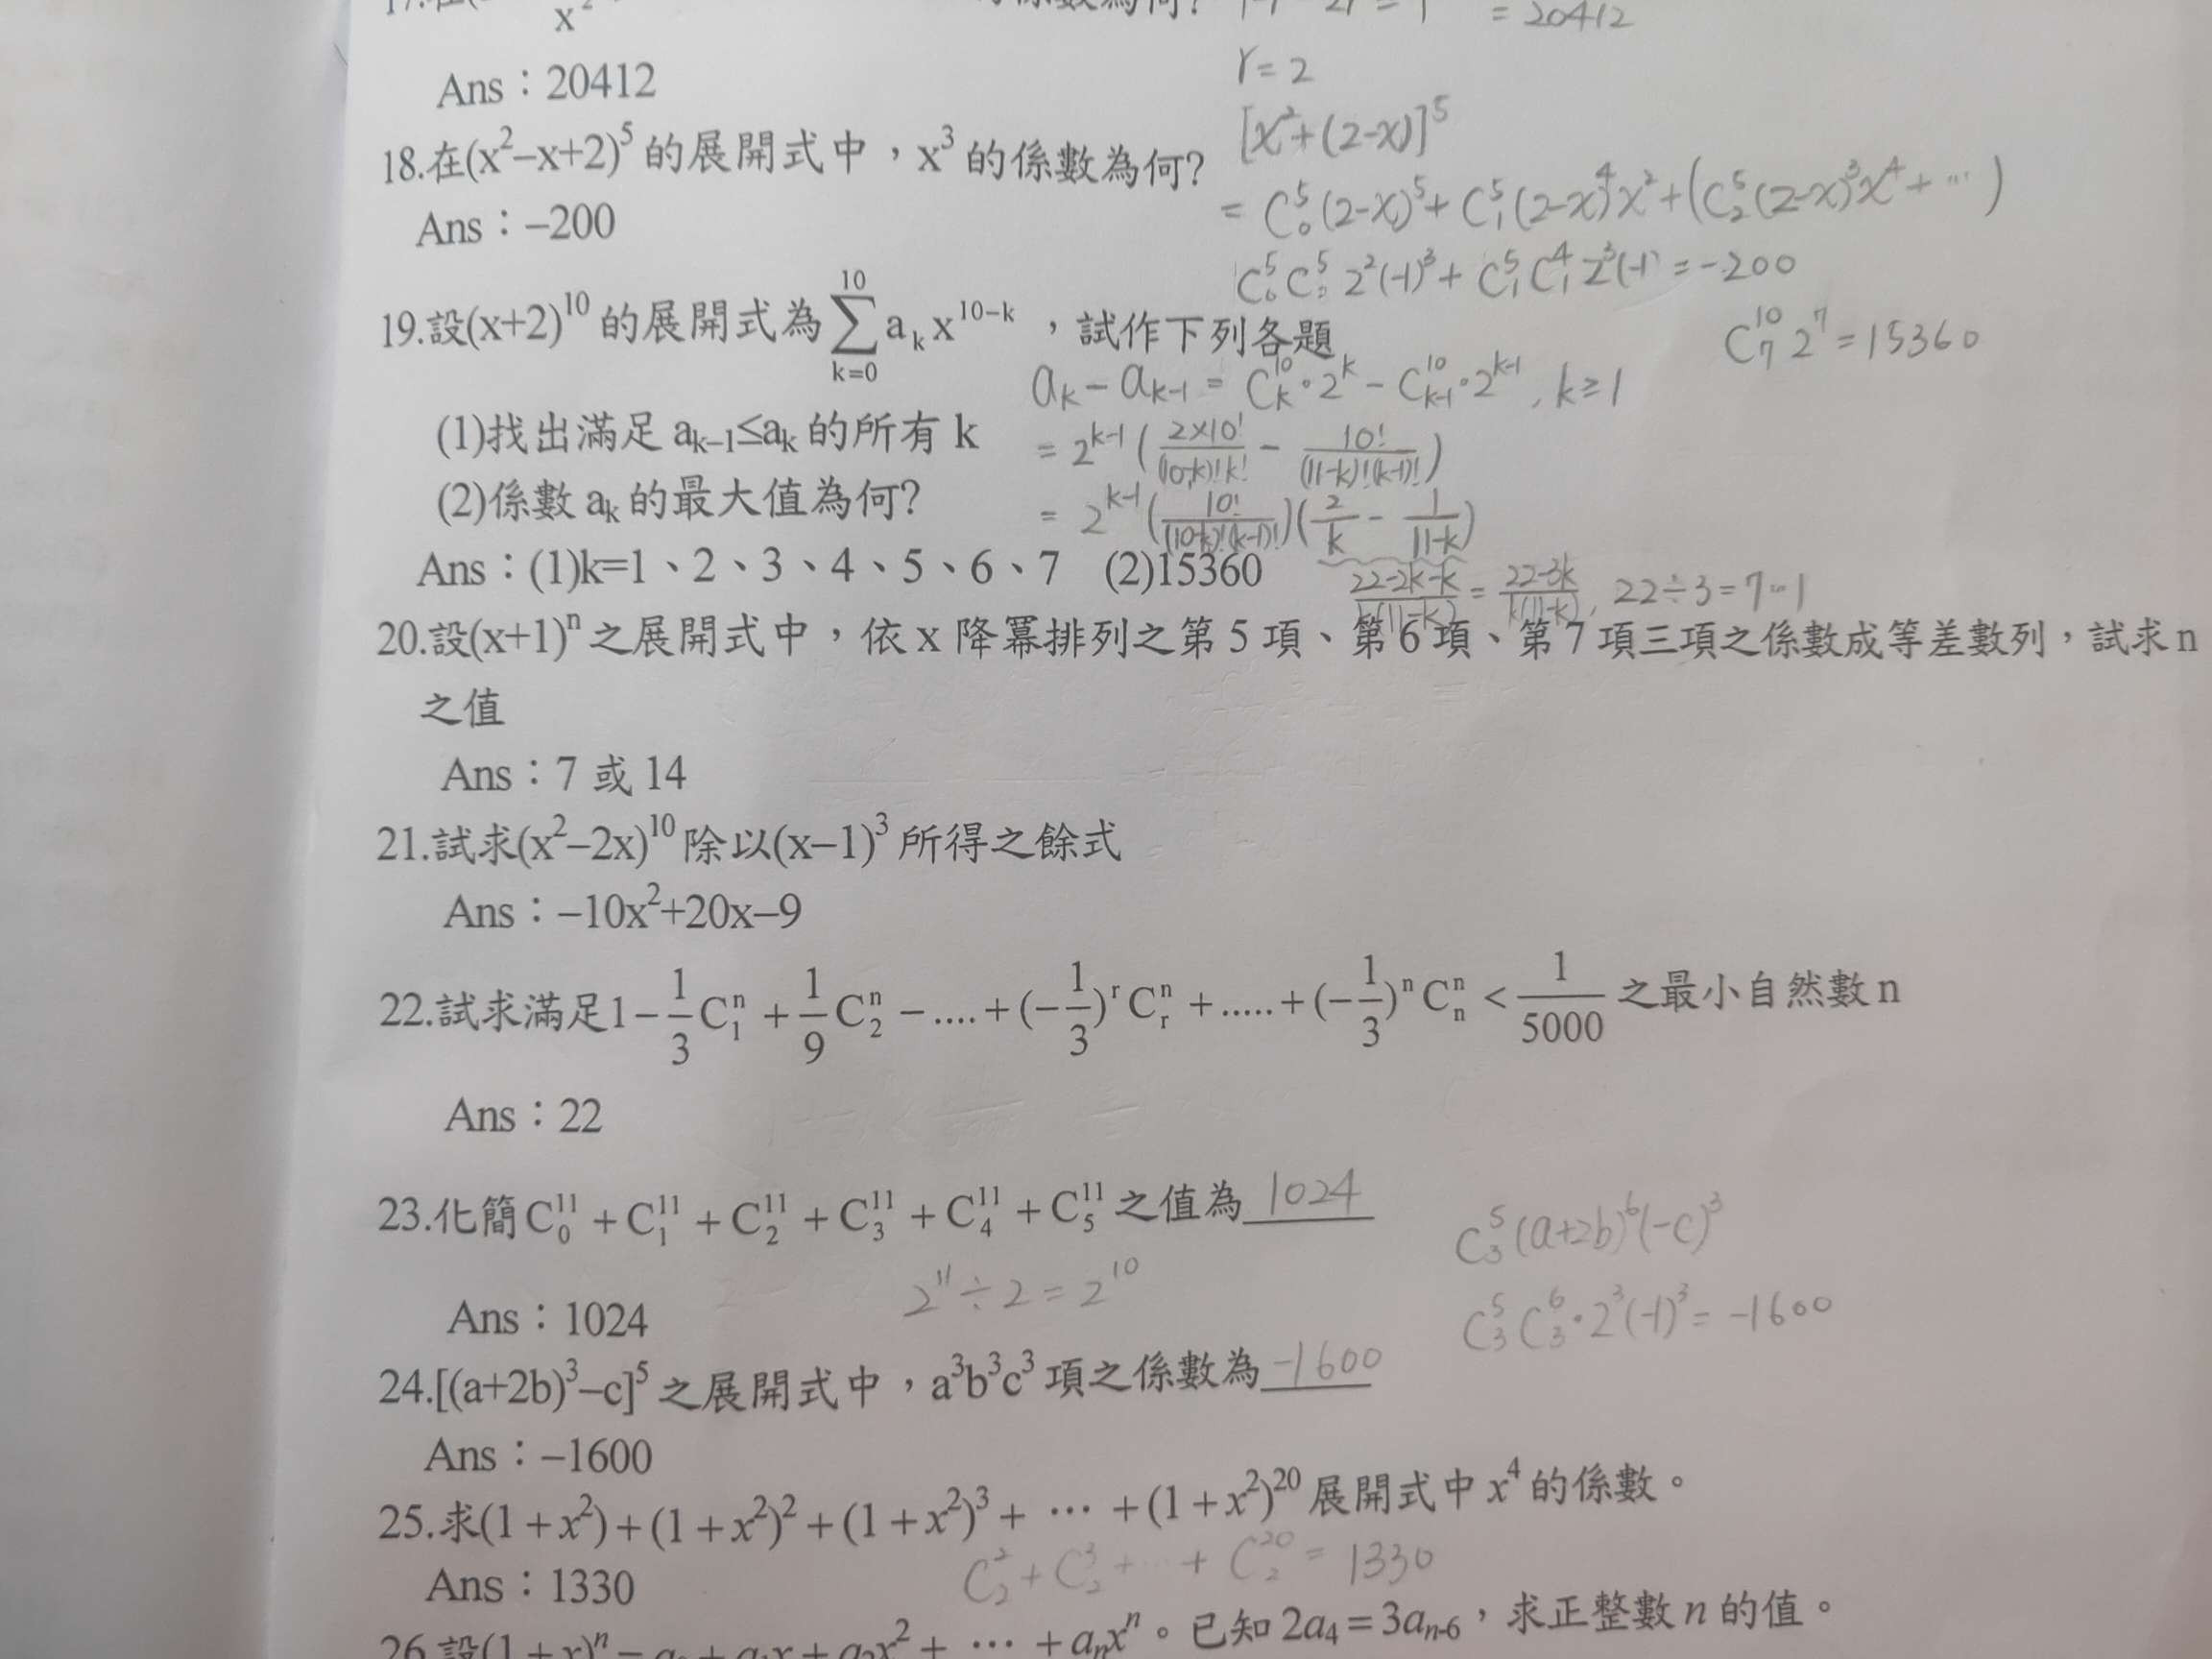 = 20412
x²
Ans：20412
r = 2
18.在(x²–x+2)⁵ 的展開式中，x³ 的係數為何?
[x²+(2-x)]⁵
= C⁵₀(2-x)⁵+ C⁵₁(2-x)⁴x²+(C⁵₂(2-x)³x⁴+ … )
Ans：–200
C⁵₀C⁵₃ 2²(-1)³+ C⁵₁C⁴₁2³(-1) = -200
19.設(x+2)¹⁰ 的展開式為 ∑_{k=0}^{10} aₖx^{10–k}，試作下列各題
C¹⁰₇2⁷ = 15360
aₖ - aₖ₋₁ = C¹⁰ₖ·2ᵏ - C¹⁰ₖ₋₁·2ᵏ⁻¹ , k ≥ 1
(1)找出滿足 aₖ₋₁≤aₖ 的所有 k
= 2ᵏ⁻¹( 2×10!/(10-k)!k! - 10!/(11-k)!(k-1)! )
(2)係數 aₖ 的最大值為何?
= 2ᵏ⁻¹( 10!/(10-k)!(k-1)! )( 2/k - 1/11-k )
Ans：(1)k=1、2、3、4、5、6、7 (2)15360
22-2k-k/k(11-k) = 22-3k/k(11-k) , 22÷3 = 7…1
20.設(x+1)ⁿ 之展開式中，依 x 降冪排列之第 5 項、第 6 項、第 7 項三項之係數成等差數列，試求 n
之值
Ans：7 或 14
21.試求(x²–2x)¹⁰ 除以(x–1)³ 所得之餘式
Ans：–10x²+20x–9
22.試求滿足1–1/3 Cⁿ₁ + 1/9 Cⁿ₂ – .... + (–1/3)ʳCⁿᵣ + ..... + (–1/3)ⁿCⁿₙ < 1/5000 之最小自然數 n
Ans：22
23.化簡 C¹¹₀ + C¹¹₁ + C¹¹₂ + C¹¹₃ + C¹¹₄ + C¹¹₅ 之值為 1024
2¹¹ ÷ 2 = 2¹⁰
C⁵₃(a+2b)⁶(-c)³
Ans：1024
C⁵₃C⁶₃·2³(-1)³ = -1600
24.[(a+2b)³–c]⁵ 之展開式中，a³b³c³ 項之係數為 -1600
Ans：–1600
25.求(1+x²)+(1+x²)²+(1+x²)³+ ⋯ +(1+x²)²⁰ 展開式中 x⁴ 的係數。
C²₂ + C³₂ + … + C²⁰₂ = 1330
Ans：1330
26.設(1+x)ⁿ = a₀ + a₁x + a₂x² + ⋯ + aₙxⁿ。已知 2a₄ = 3aₙ₋₆，求正整數 n 的值。